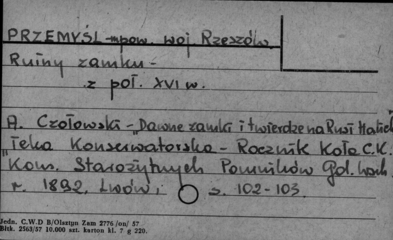 PRZEMYŚL - mpow. woj Rzeszów.
Ruiny zamku -
z poł. XVI w.
A. Czołowski - "Dawne zamki i twierdze na Rusi Halick
"Teka Konserwatorska - Rocznik Koła C.K.
Kons. Starożytnych Pomników Gal. wsch.
r. 1892. Lwów; s. 102-103.
Jedn. C.W.D B/Olsztyn Zam 2776/nn/ 57
Bltk. 2563/57 10.000 szt. karton kl. 7 g 220.